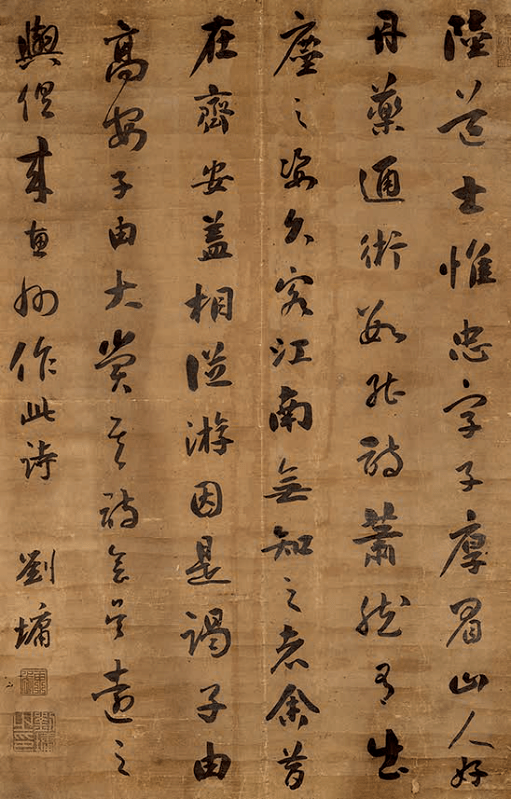 陸道士惟忠字子厚眉山人好
丹藥通術數能詩蕭然有出
塵之姿久客江南無知之者余昔
在齊安蓋相從游因是謁子由
高安子由大賞其詩會吳遠之
與俱來惠州作此詩 劉墉